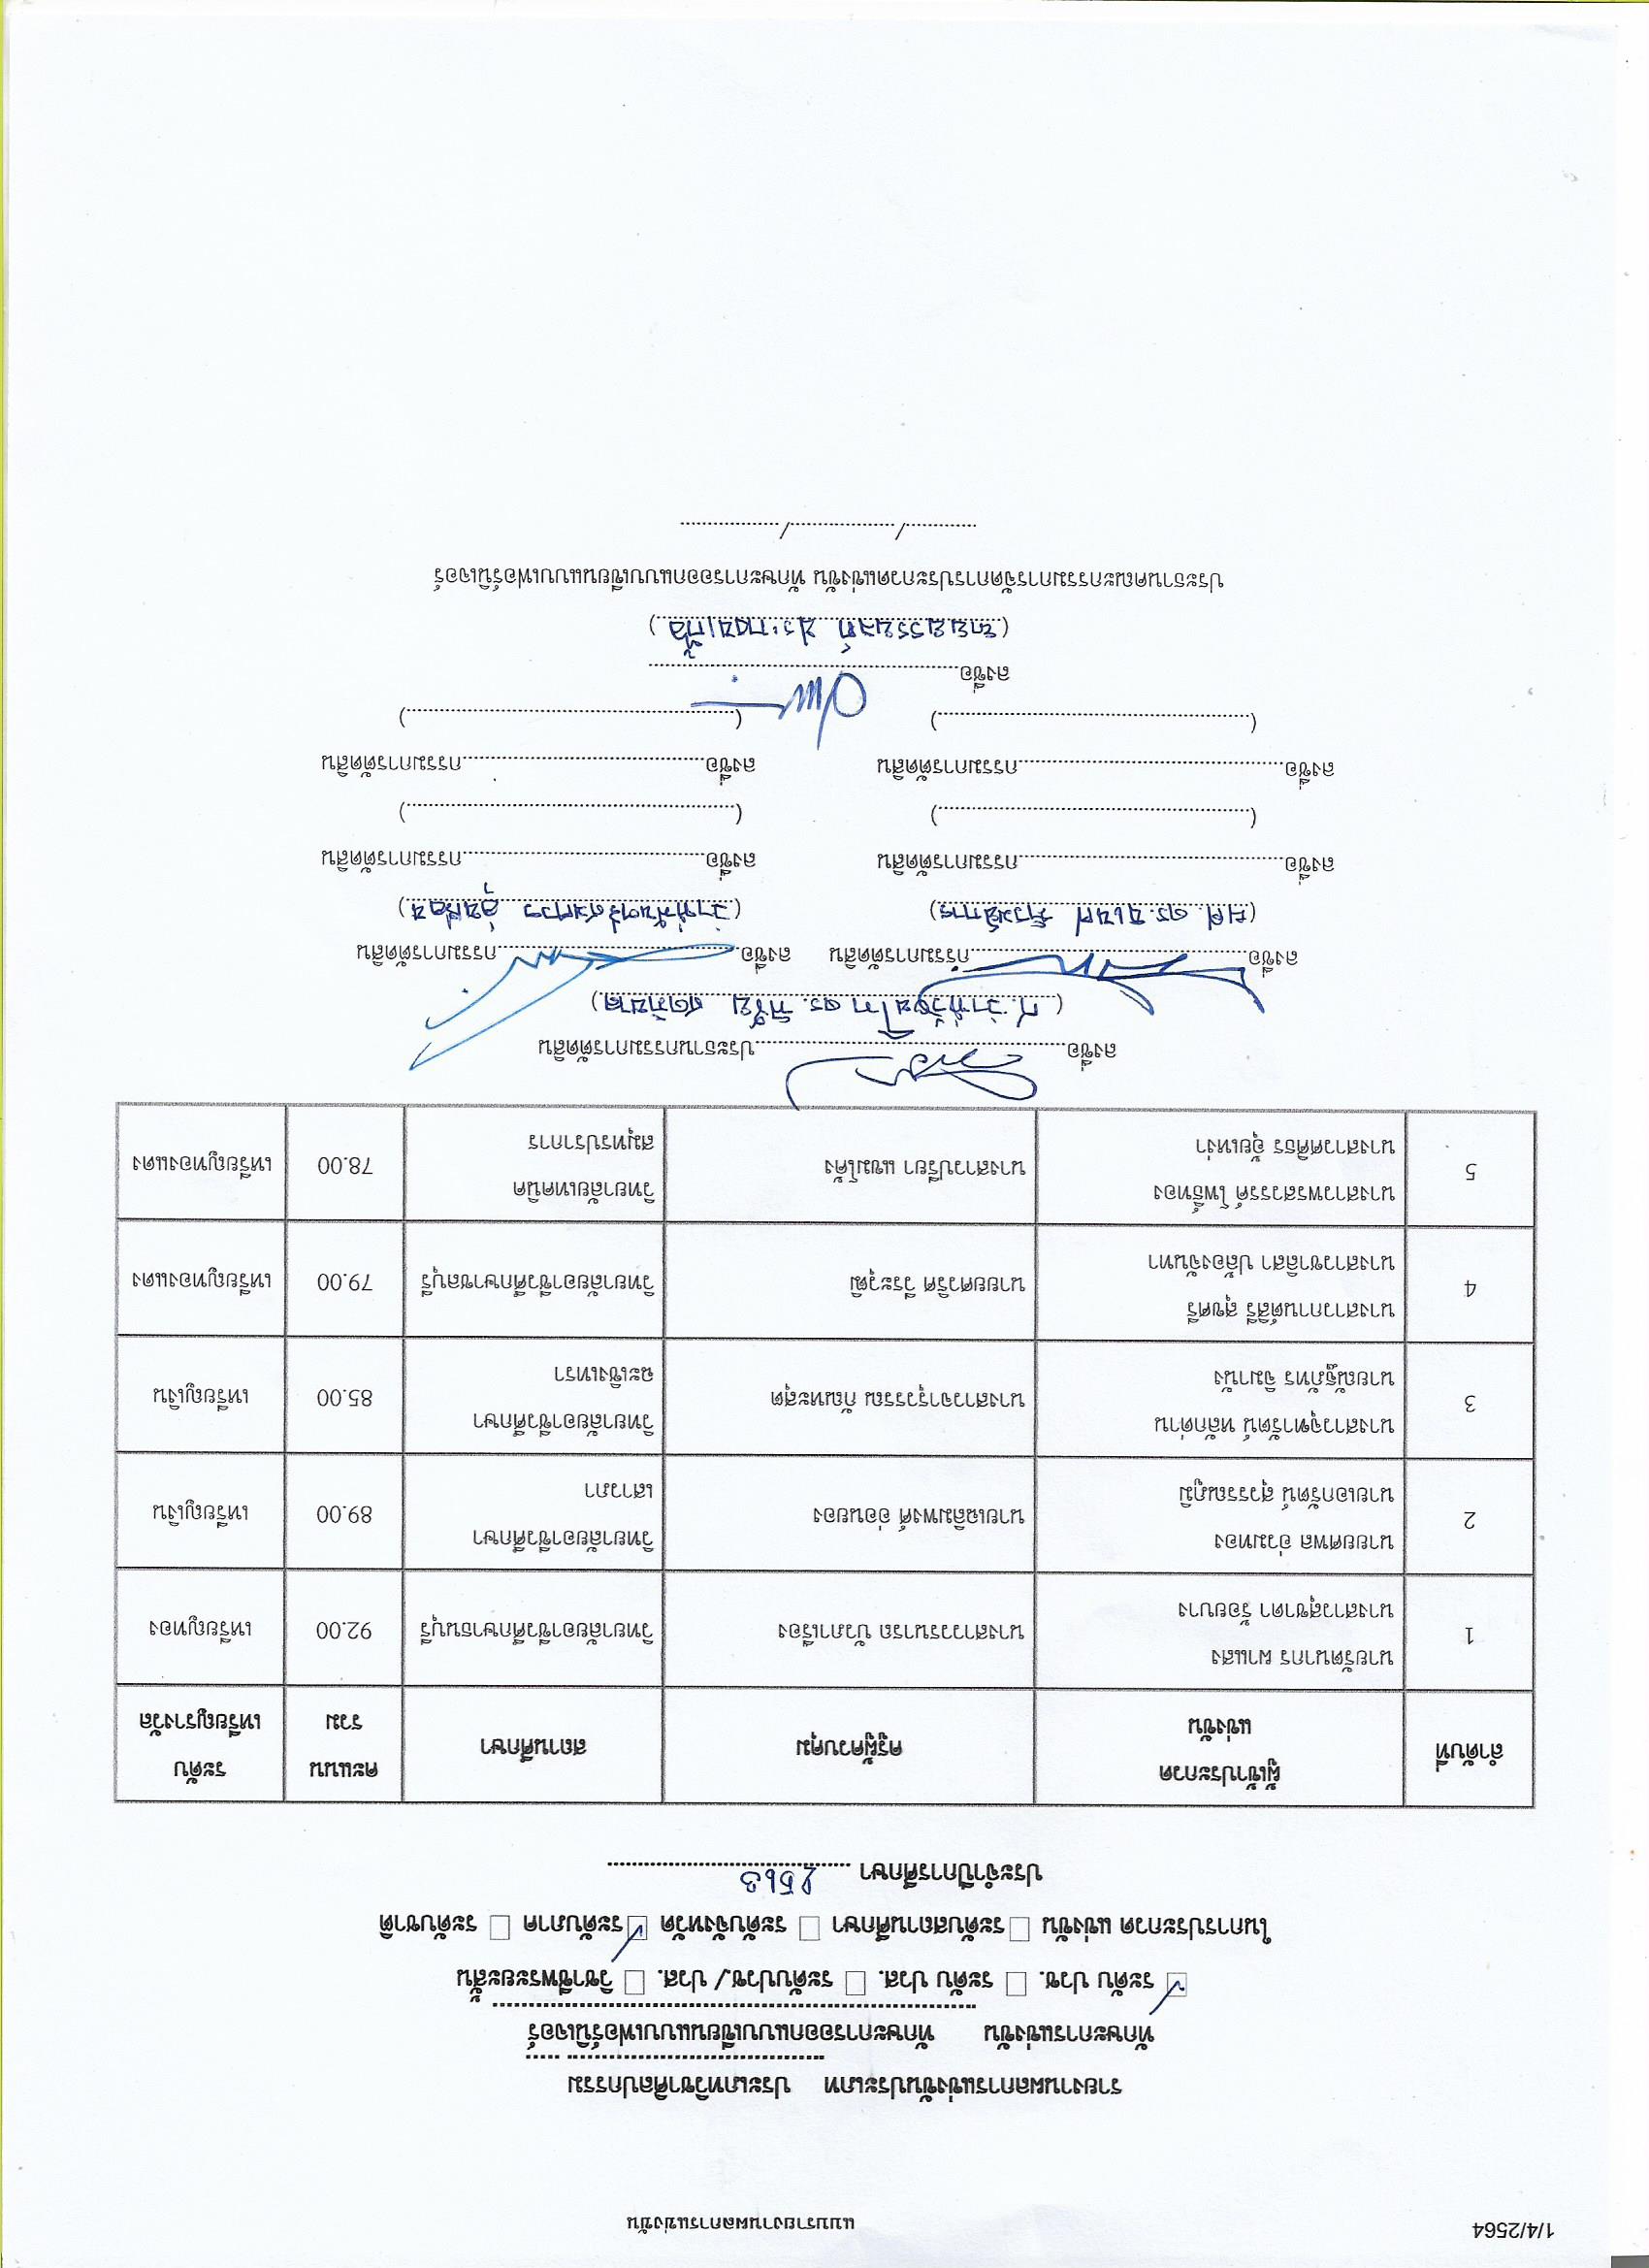 1/4/2564
แบบรายงานผลการแข่งขัน
รายงานผลการแข่งขันประเภท ประเภทวิชาศิลปกรรม
ทักษะการแข่งขัน ทักษะการออกแบบเขียนแบบเฟอร์นิเจอร์
☑ ระดับ ปวช. ☐ ระดับ ปวส. ☐ ระดับปวช/ ปวส. ☐ วิชาชีพระยะสั้น
ในการประกวด แข่งขัน ☐ ระดับสถานศึกษา ☐ ระดับจังหวัด ☑ ระดับภาค ☐ ระดับชาติ
ประจำปีการศึกษา 2563
ลำดับที่ ผู้เข้าประกวด แข่งขัน ครูผู้ควบคุม สถานศึกษา คะแนน รวม ระดับ เหรียญรางวัล
1 นายรัตนากร ผาแสง นางสาววรรนารถ บัวภาเรือง วิทยาลัยอาชีวศึกษาธนบุรี 92.00 เหรียญทอง
นางสาวสุชาดา ร้อยบาง
2 นายยศพล อ่วมทอง นายเฉลิมพงศ์ อ่อนยอง วิทยาลัยอาชีวศึกษา 89.00 เหรียญเงิน
นายเอกรัตน์ สุวรรณภูมิ เสาวภา
3 นางสาวจุฑารัตน์ หลักด่าน นางสาวจารุวรรณ กัณทะสุต วิทยาลัยอาชีวศึกษา 85.00 เหรียญเงิน
นายณัฐภัทร นิมานัง ฉะเชิงเทรา
4 นางสาวกานต์สิรี สุขศรี นายยศวริศ วีระวุฒิ วิทยาลัยอาชีวศึกษาชลบุรี 79.00 เหรียญทองแดง
นางสาวชาลิสา ปล้องจันทา
5 นางสาวพรสวรรค์ โพธิ์ทอง นางสาวปรียา แซมโค้ง วิทยาลัยเทคนิค 78.00 เหรียญทองแดง
นางสาวศศิธร อุ้ยแหง่า สมุทรปราการ
ลงชื่อ ประธานกรรมการตัดสิน
ลงชื่อ กรรมการตัดสิน ลงชื่อ กรรมการตัดสิน
ลงชื่อ กรรมการตัดสิน ลงชื่อ กรรมการตัดสิน
( ) ( )
ลงชื่อ กรรมการตัดสิน ลงชื่อ กรรมการตัดสิน
( ) ( )
ลงชื่อ
ประธานคณะกรรมการจัดการประกวดแข่งขัน ทักษะการออกแบบเขียนแบบเฟอร์นิเจอร์
/ /